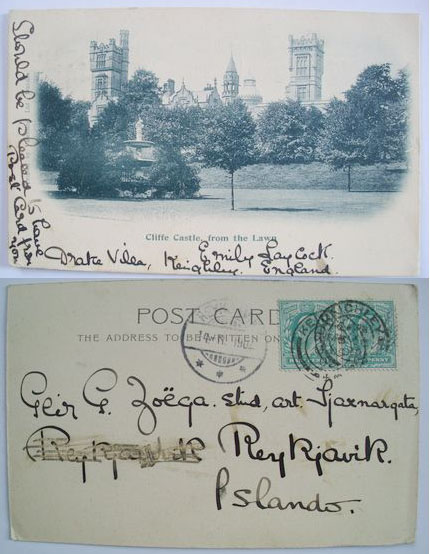 Should be pleased to have
Post Card from
you
Cliffe Castle, from the Lawn
Emily Laycock.
Drake Villa, Keighley, England.
POST CARD
THE ADDRESS TO BE WRITTEN ON
Geir G. Zoëga. stud, art. Tjarnargata,
Reykjavik Reykjavik.
Islando.